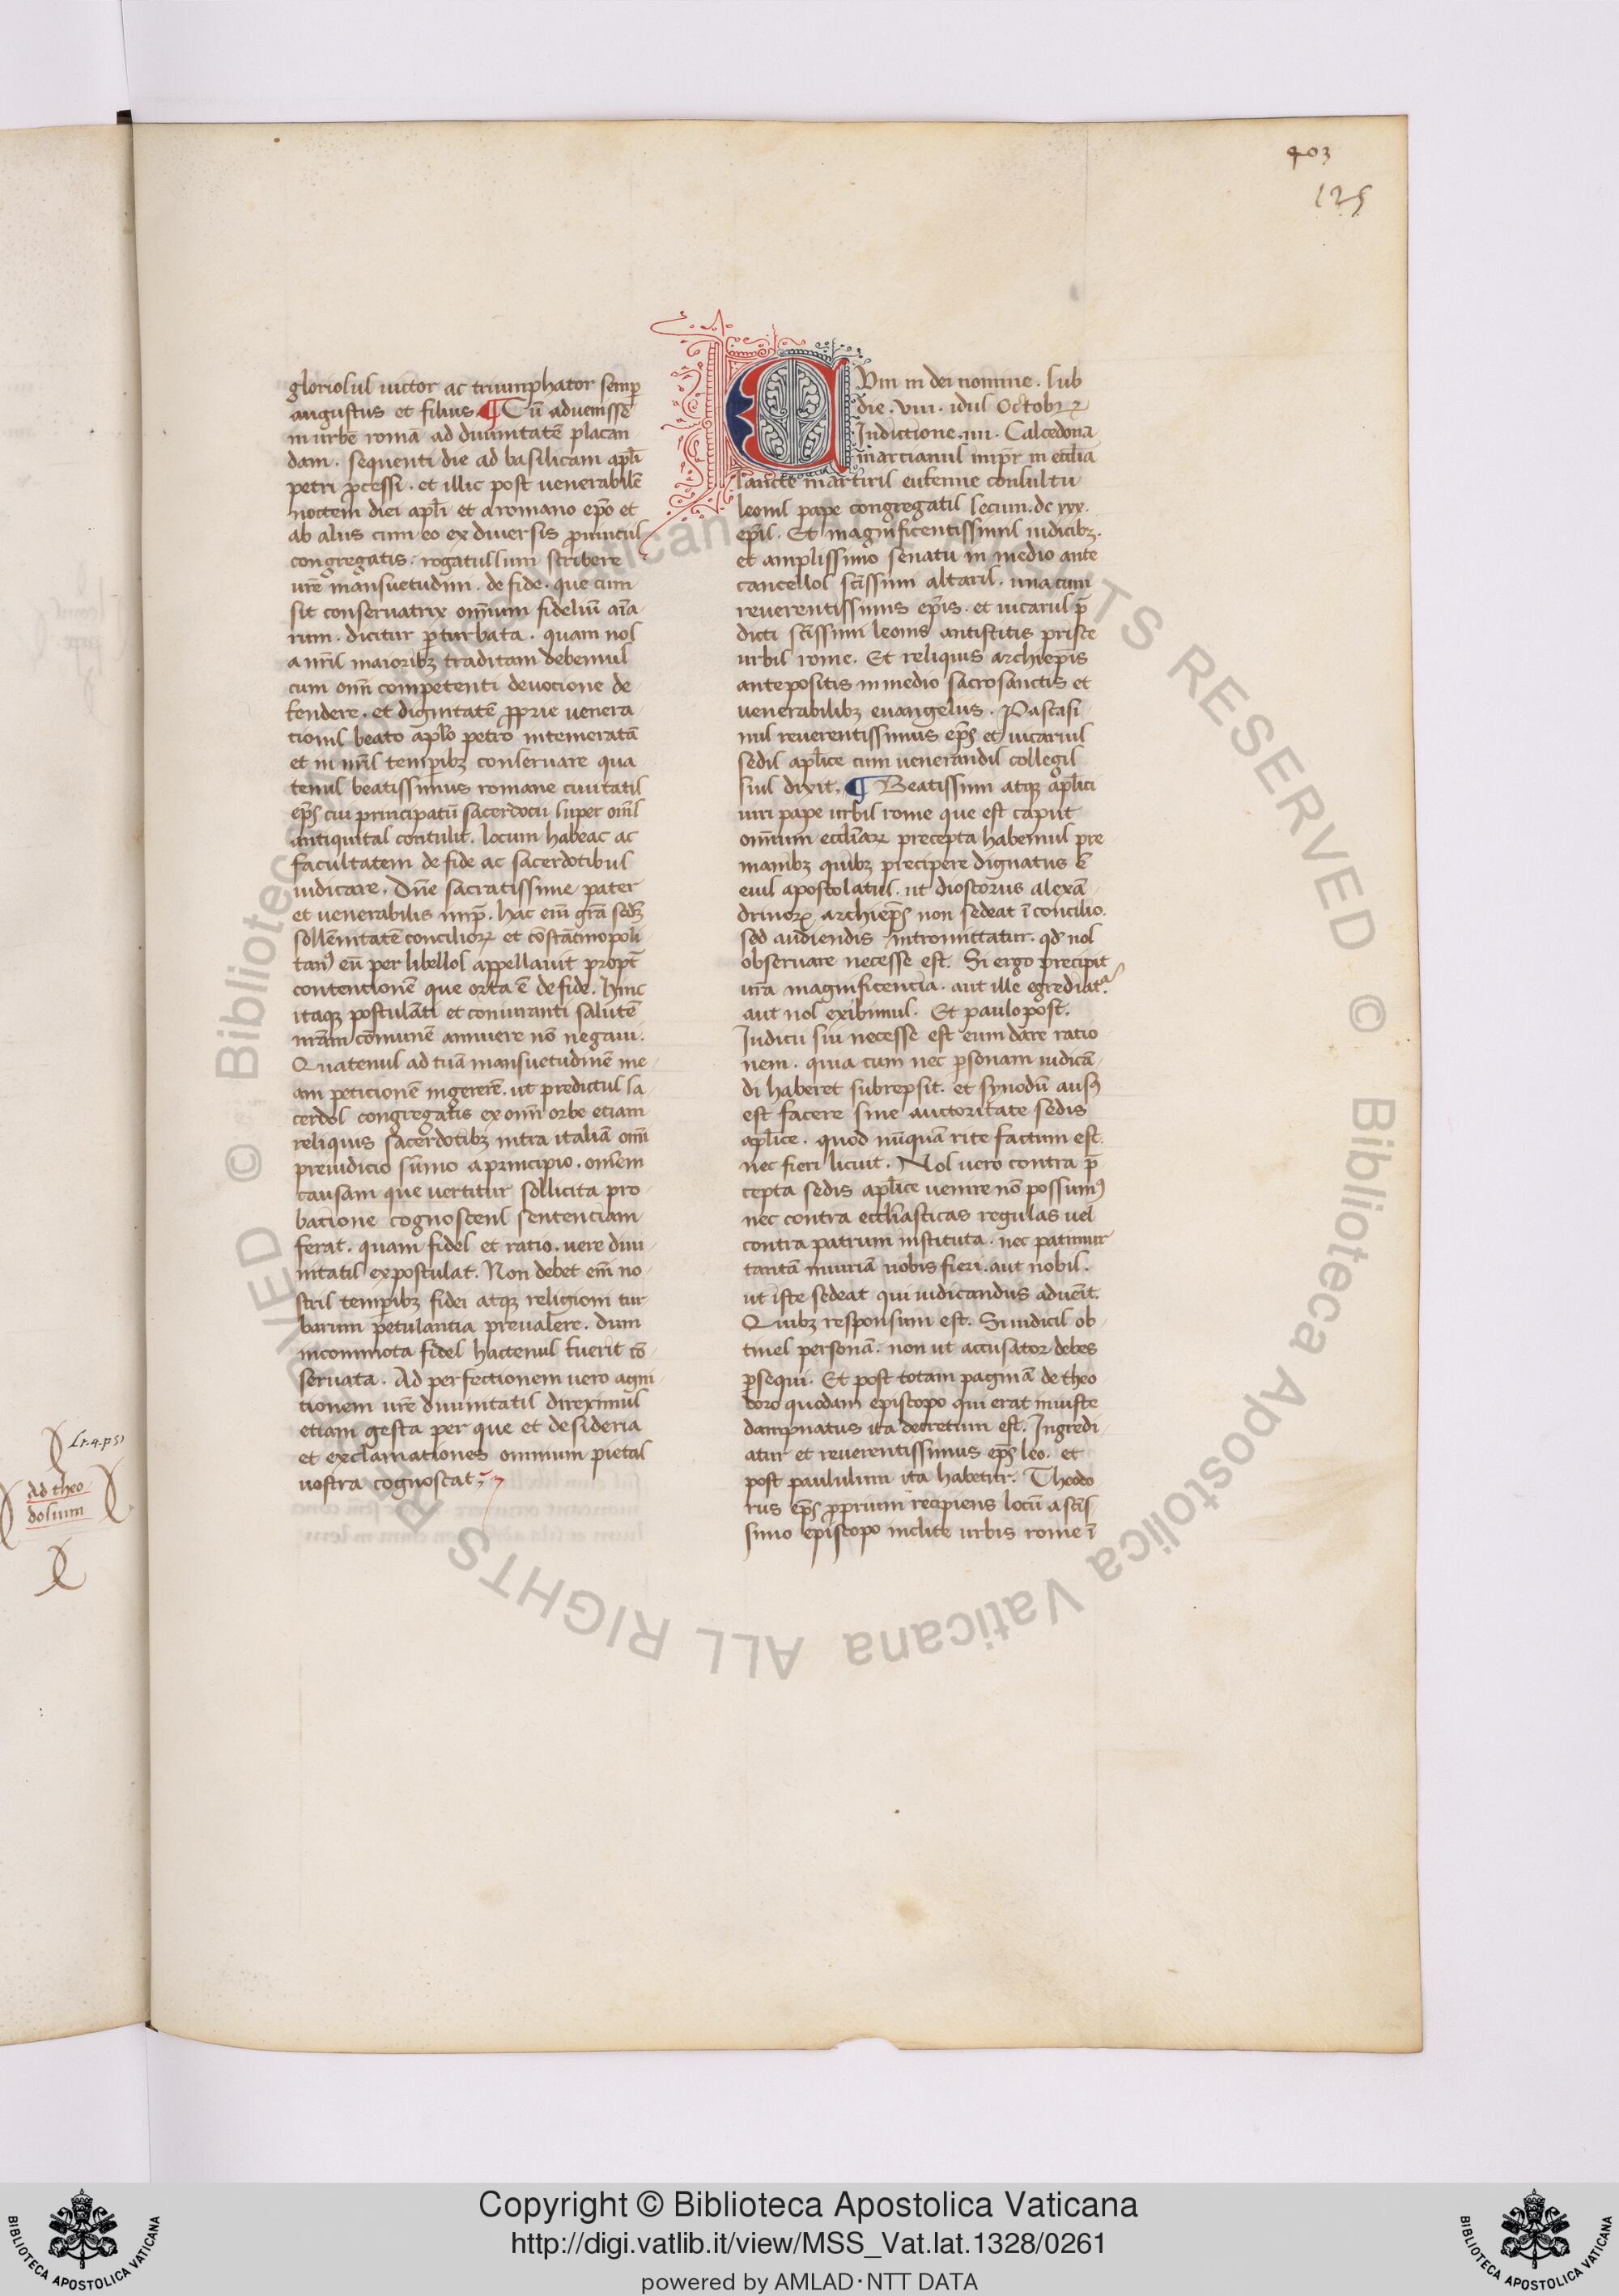 403
125
gloriosus victor ac triumphator semp̄
augustus et filius. ¶ Cū aduenisse
in urbē romā ad diuinitatē placan
dam. sequenti die ad basilicam apl̄i
petri p̄cessi. et illic post uenerabilē
noctem diei apl̄i et a romano ep̄o et
ab aliis cum eo ex diuersis prouinciis
congregatis. rogatus sum scribere
ur̄e mansuetudini. de fide. que cum
sit conseruatrix om̄ium fideliū aīa
rum. dicitur p̄turbata. quam nos
a nr̄is maiorib; traditam debemus
cum omī competenti deuocione de
fendere. et dignitatē p̄prie uenera
tionis beato aplo petro intemeratā
et in nr̄is temporib; conseruare qua
tenus beatissimus romane ciuitatis
ep̄s cui principatū sacerdocii super om̄s
antiquitas contulit. locum habeat ac
facultatem de fide ac sacerdotibus
iudicare. Dn̄e sacratissime pater
et uenerabilis imp̄. hac em̄ gr̄a sed̄m
sollēnitatē concilioꝝ et cōstātinopoli
tanꝰ eū per libellos appellauit propt̄
contentionē que orta ē de fide. Hinc
itaq; postulāti et coniuranti salutē
nr̄am cōmunē annuere nō negaui.
Quatenus ad tuā mansuetudinē me
am peticionē ingererē. ut predictus sa
cerdos congregatis ex omī orbe etiam
reliquis sacerdotib; intra italiā omī
preiudicio sūmo a principio. om̄em
causam que uertitur sollicita pro
batione cognoscens sentenciam
ferat. quam fides et ratio. uere diui
nitatis expostulat. Non debet em̄ no
stris temporib; fidei atq; religioni tur
barum petulantia preualere. dum
incommota fides hactenus fuerit cō
seruata. Ad perfectionem uero agni
tionem ur̄e diuinitatis direximus
etiam gesta per que et desideria
et exclamationes omnium pietas
uostra cognoscat;
CUm in dei nomine. sub
die. viii. idus Octobꝝ
Indictione. iiii. Calcedona
martianus imp̄r in ecclīa
sancte martiris eufemie consultu
leonis pape congregatis secum. dc xxx.
ep̄is. Et magnificentissimis iudicib;.
et amplissimo senatu in medio ante
cancellos sc̄issimi altaris. una cum
reuerentissimis ep̄is. et uicarus p̄
dicti sc̄issimi leonis antistitis prisce
urbis rome. Et reliquis archiep̄is
antepositis in medio sacrosanctis et
uenerabilib; euangeliis. Pascasi
nus reuerentissimus ep̄s et uicarius
sedis apl̄ice cum uenerandis collegis
suis dixit. ¶ Beatissimi atq; apl̄ici
uiri pape urbis rome que est caput
om̄ium eccl̄iaꝝ precepta habemus pre
manib; quib; precipere dignatus ē
eius apostolatus. ut dioscorus alexā
drinoꝝ archiep̄s non sedeat ī concilio.
sed audiendis intromittatur. qd̄ nos
obseruare necesse est. Si ergo precipit
ur̄a magnificentia. aut ille egrediat.
aut nos exibimus. Et paulo post.
Iudicii sui necesse est eum dare ratio
nem. quia cum nec p̄sonam iudicā
di haberet subrepsit. et synodū ausꝰ
est facere sine auctoritate sedis
apl̄ice. quod nūquā rite factum est.
nec fieri licuit. Nos uero contra p̄
cepta sedis apl̄ice uenire nō possumꝰ
nec contra eccl̄iasticas regulas uel
contra patrum instituta. nec patimur
tantā iniuriā uobis fieri. aut nobis.
ut iste sedeat qui iudicandus aduenit.
Quib; responsum est. Si iudicis ob
tines personā. non ut accusator debes
p̄sequi. Et post totam paginā de theo
doro quodam episcopo qui erat iniuste
dampnatus ita decretum est. Ingredi
atur et reuerentissimus ep̄s leo. et
post paululum ita habetur. Theodo
rus ep̄s p̄prium recipiens locū a scīs
simo episcopo inclite urbis rome ī
Ad theo
dosium
© Biblioteca Apostolica Vaticana ALL RIGHTS RESERVED
© Biblioteca Apostolica Vaticana ALL RIGHTS RESERVED
BIBLIOTECA APOSTOLICA VATICANA
Copyright © Biblioteca Apostolica Vaticana
http://digi.vatlib.it/view/MSS_Vat.lat.1328/0261
powered by AMLAD·NTT DATA
BIBLIOTECA APOSTOLICA VATICANA